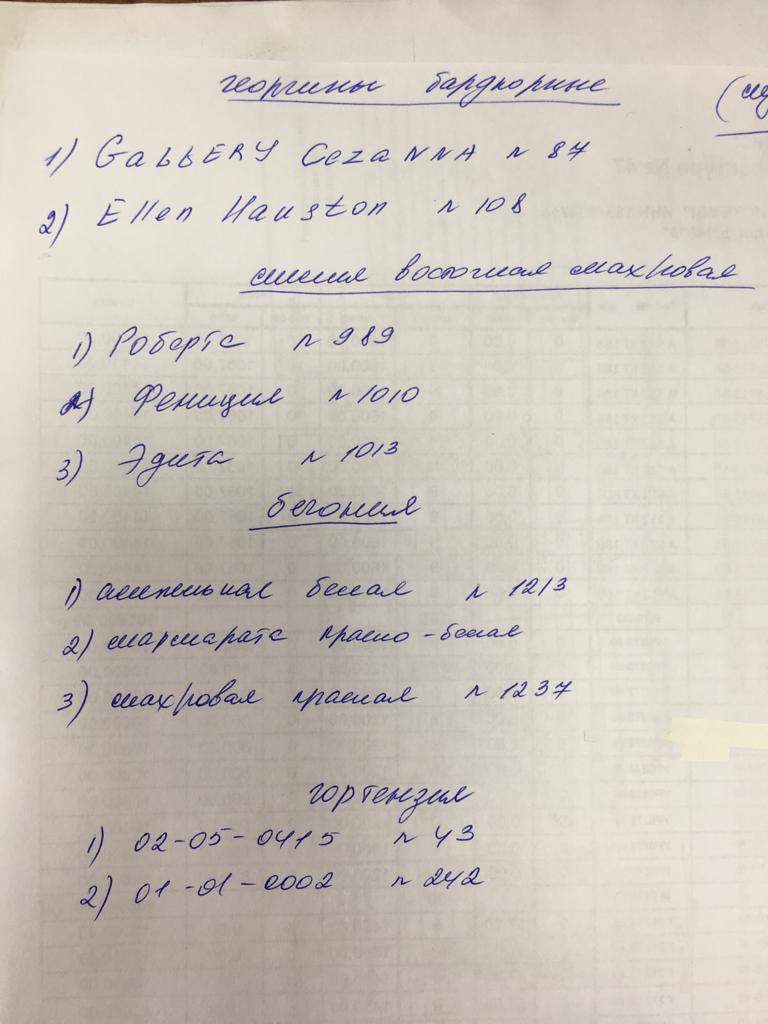 георгины бардюрные
1) GaLLERY CezaNNA n 87
2) Ellen Hauston n 108
лилия восточная махровая
1) Роберта n 989
2) Фениция n 1010
3) Эдита n 1013
бегония
1) ампельная белая n 1213
2) мармарата красно-белая
3) махровая красная n 1237
гортензия
1) 02-05-0415 n 43
2) 01-01-0002 n 242